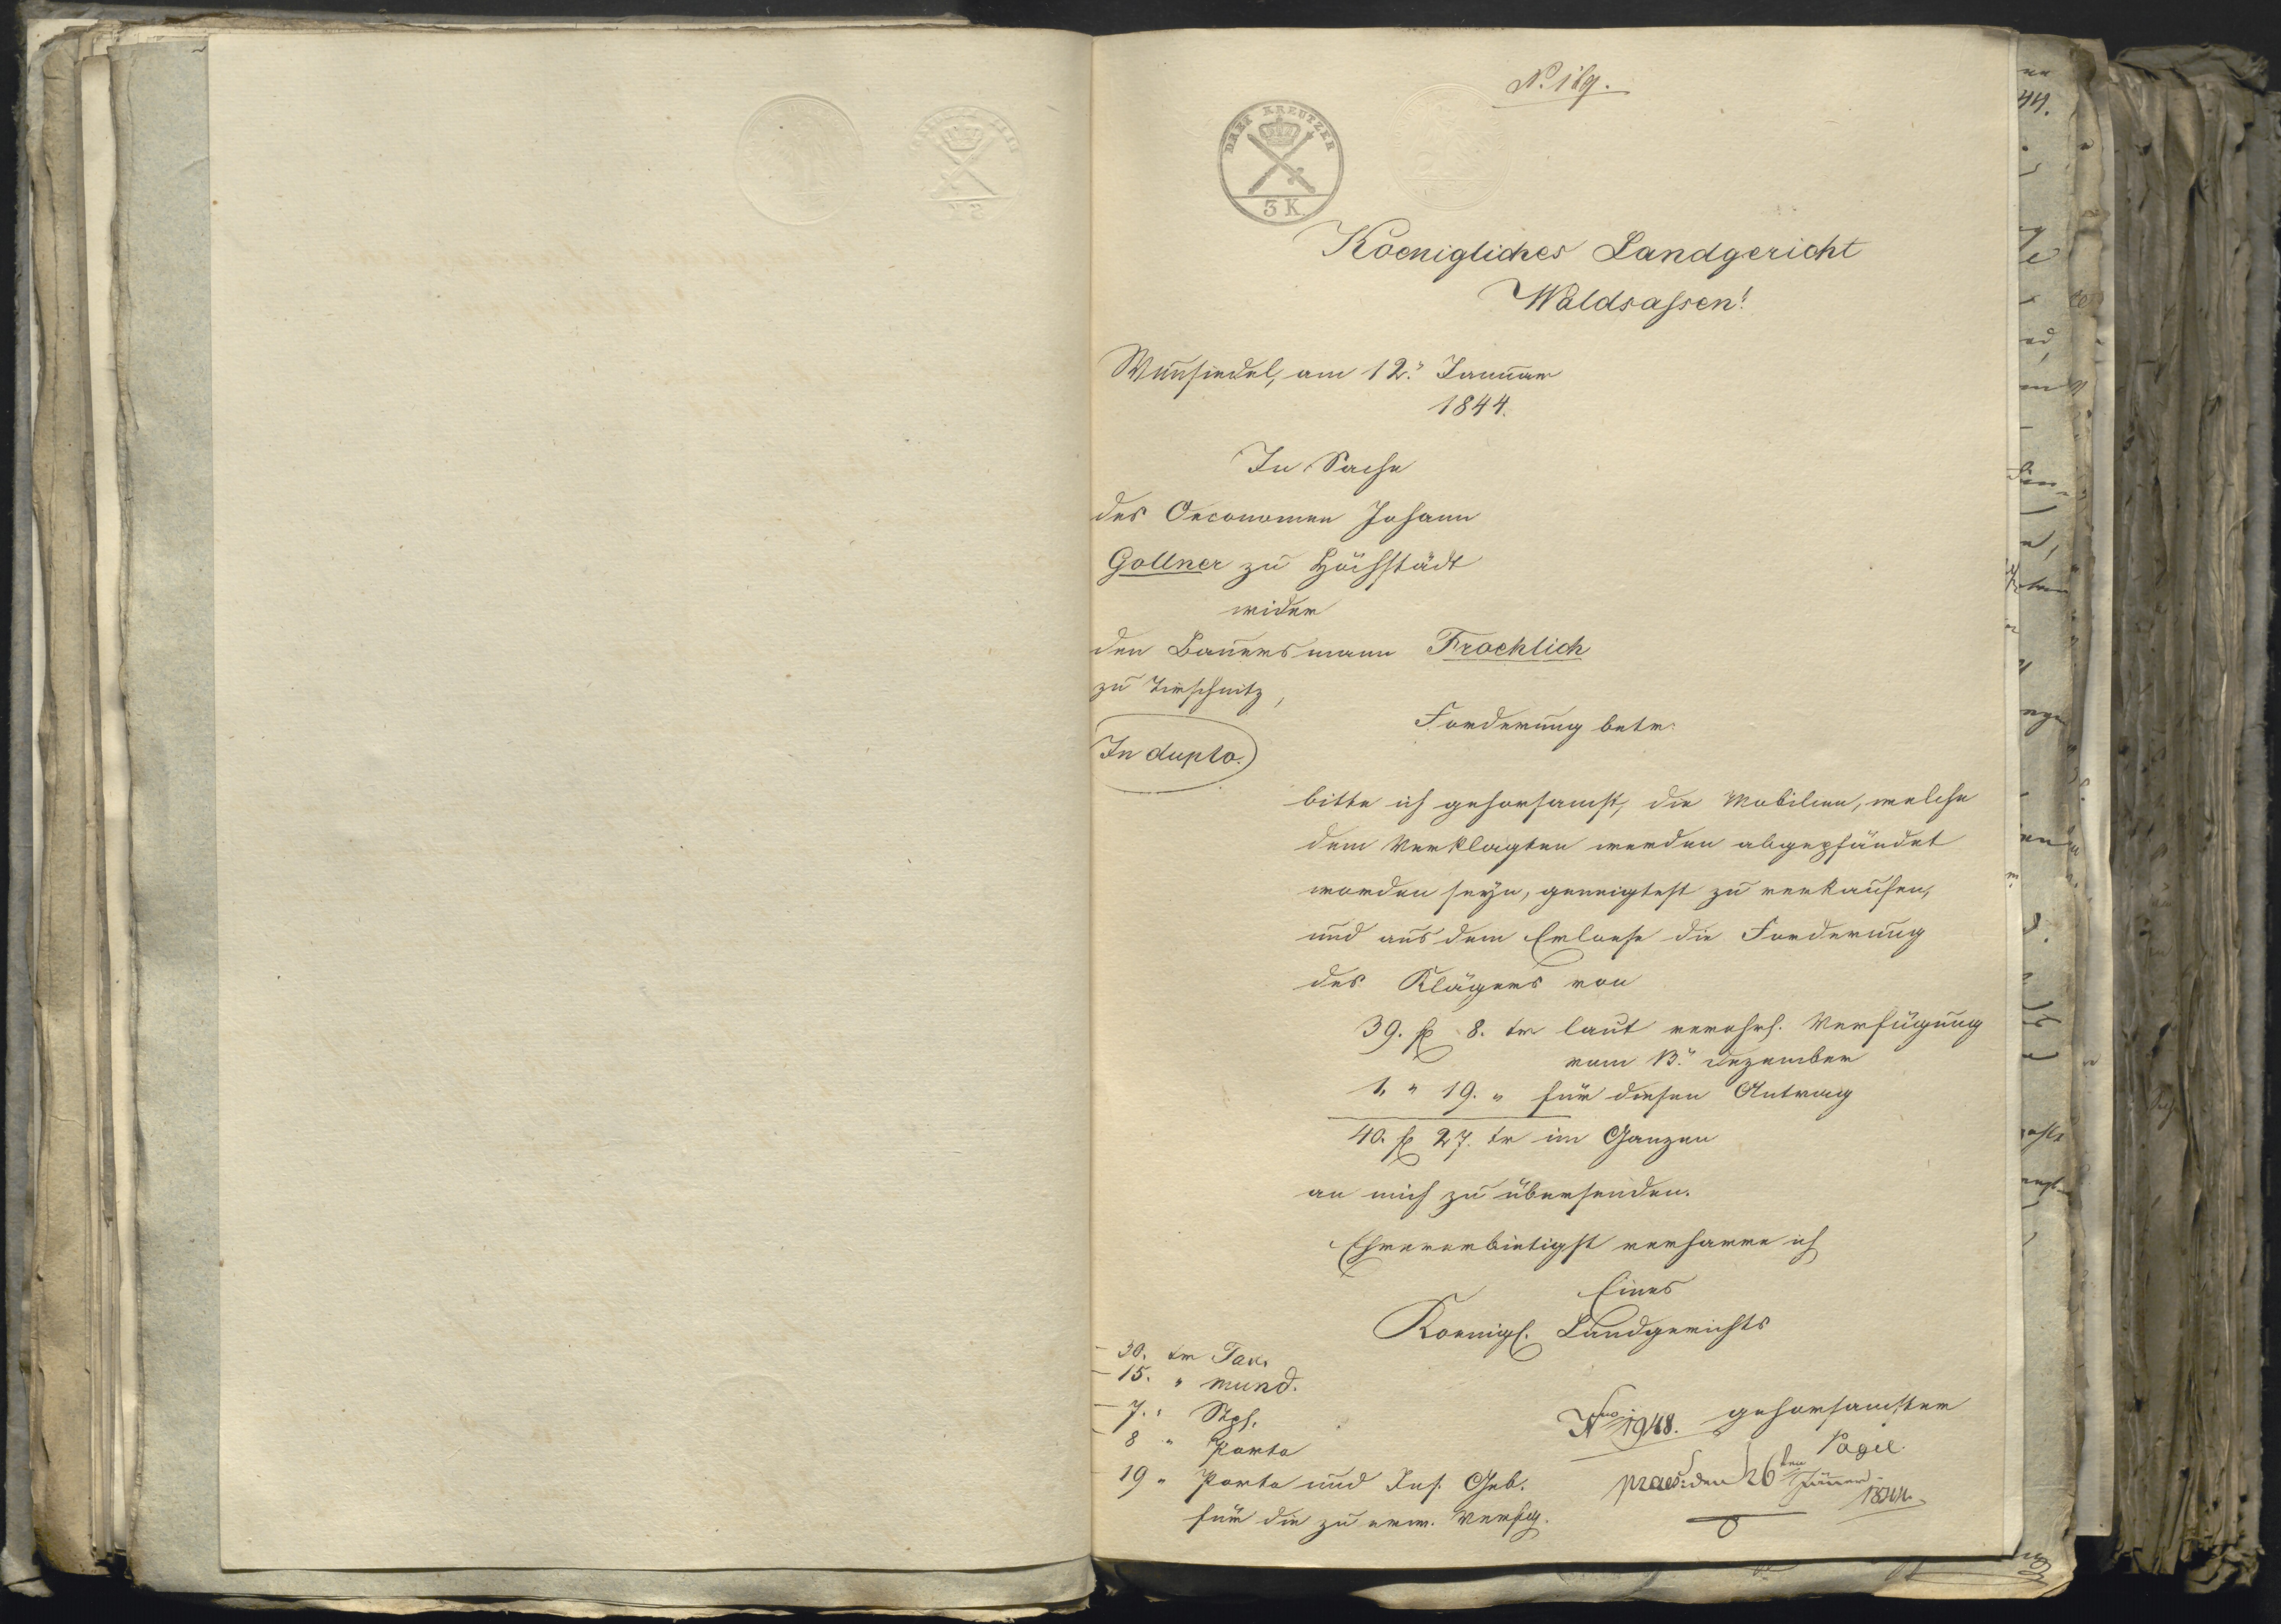 N. 189.
DREI KREUTZER
3 K
Koenigliches Landgericht
Waldsassen!
Wunsiedel, am 12. Januar
1844.
In Sache
des Oeconomen Johann
Gollner zu Höchstädt
wider
den Bauersmann Froehlich
zu Tirschnitz,
Forderung betr.
In duplo.
bitte ich gehorsamst, die Mobilien, welche
dem Verklagten werden abgepfändet
worden seyn, geneigtest zu verkaufen,
und aus dem Erloese die Forderung
des Klägers von
39. f 8. kr laut verehrl. Verfügung
vom 13. Dezember
1. " 19. " für diesen Antrag
40. f 27. kr im Ganzen
an mich zu übersenden.
Ehrererbietigst verharre ich
Eines
Koenigl. Landgerichts
- 30. kr Tax.
- 15. " mund.
- 7. " Stpl.
- 8 " Porto
19 " Porto und Ins. Geb.
für die zu erw. Verfg.
gehorsamster
N 1948.
Pagel
praes: den 26ten Jänner
1844.